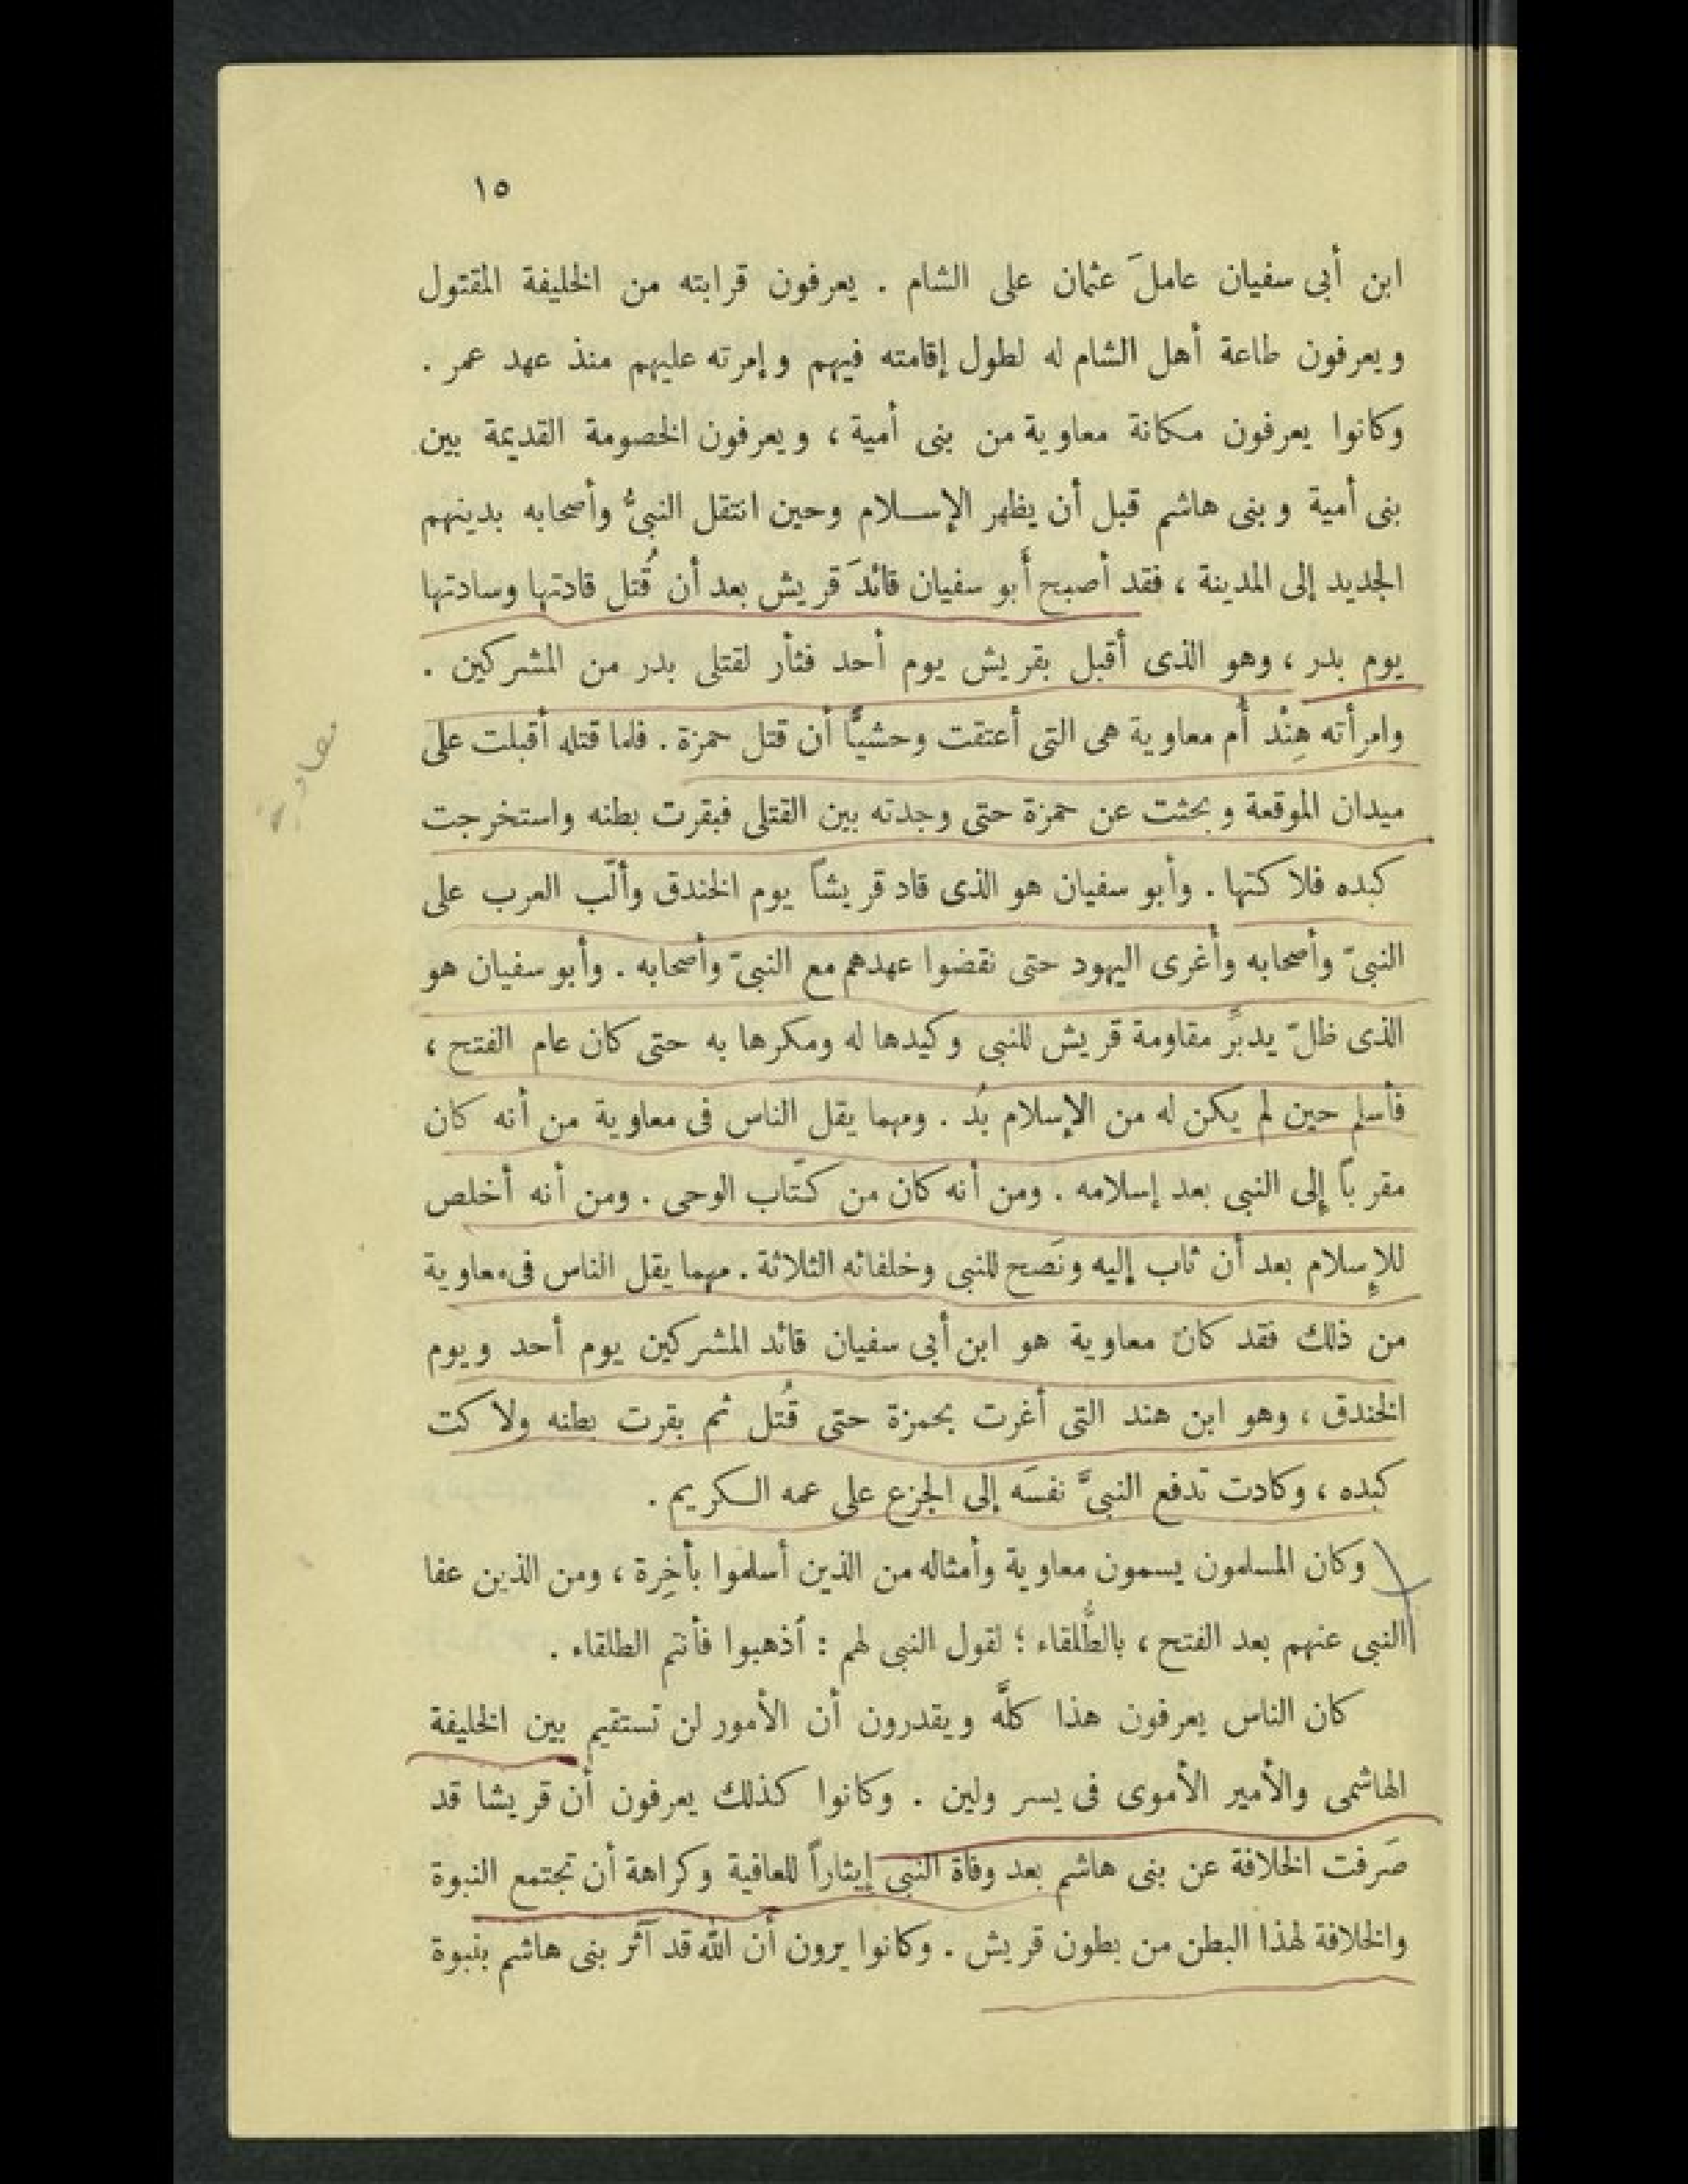 ١٥
ابن أبى سفيان عاملَ عثمان على الشام . يعرفون قرابته من الخليفة المقتول
ويعرفون طاعة أهل الشام له لطول إقامته فيهم وإمرته عليهم منذ عهد عمر .
وكانوا يعرفون مكانة معاوية من بنى أمية ، ويعرفون الخصومة القديمة بين
بنى أمية وبنى هاشم قبل أن يظهر الإسلام وحين انتقل النبىُّ وأصحابه بدينهم
الجديد إلى المدينة ، فقد أصبح أبو سفيان قائدَ قريش بعد أن قُتل قادتها وسادتها
يوم بدر ، وهو الذى أقبل بقريش يوم أحد فثأر لقتلى بدر من المشركين .
وامرأته هِنْد أم معاوية هى التى أعتقت وحشيًّا أن قتل حمزة . فلما قتله أقبلت على
ميدان الموقعة وبحثت عن حمزة حتى وجدته بين القتلى فبقرت بطنه واستخرجت
كبده فلاكتها . وأبو سفيان هو الذى قاد قريشاً يوم الخندق وألّب العرب على
النبىّ وأصحابه وأغرى اليهود حتى نقضوا عهدهم مع النبىّ وأصحابه . وأبو سفيان هو
الذى ظلّ يدبِّر مقاومة قريش للنبى وكيدها له ومكرها به حتى كان عام الفتح ،
فأسلم حين لم يكن له من الإسلام بُد . ومهما يقل الناس فى معاوية من أنه كان
مقرباً إلى النبى بعد إسلامه . ومن أنه كان من كتّاب الوحى . ومن أنه أخلص
للإسلام بعد أن ثاب إليه ونَصح للنبى وخلفائه الثلاثة . مهما يقل الناس فى معاوية
من ذلك فقد كان معاوية هو ابن أبى سفيان قائد المشركين يوم أحد ويوم
الخندق ، وهو ابن هند التى أغرت بحمزة حتى قُتل ثم بقرت بطنه ولاكت
كبده ، وكادت تدفع النبىَّ نفسَه إلى الجزع على عمه الكريم .
وكان المسلمون يسمون معاوية وأمثاله من الذين أسلموا بأخِرة ، ومن الذين عفا
النبى عنهم بعد الفتح ، بالطُّلقاء ؛ لقول النبى لهم : أذهبوا فأنتم الطلقاء .
كان الناس يعرفون هذا كلَّه ويقدرون أن الأمور لن تستقيم بين الخليفة
الهاشمى والأمير الأموى فى يسر ولين . وكانوا كذلك يعرفون أن قريشا قد
صَرفت الخلافة عن بنى هاشم بعد وفاة النبى إيثاراً للعافية وكراهة أن تجتمع النبوة
والخلافة لهذا البطن من بطون قريش . وكانوا يرون أن الله قد آثر بنى هاشم بنبوة